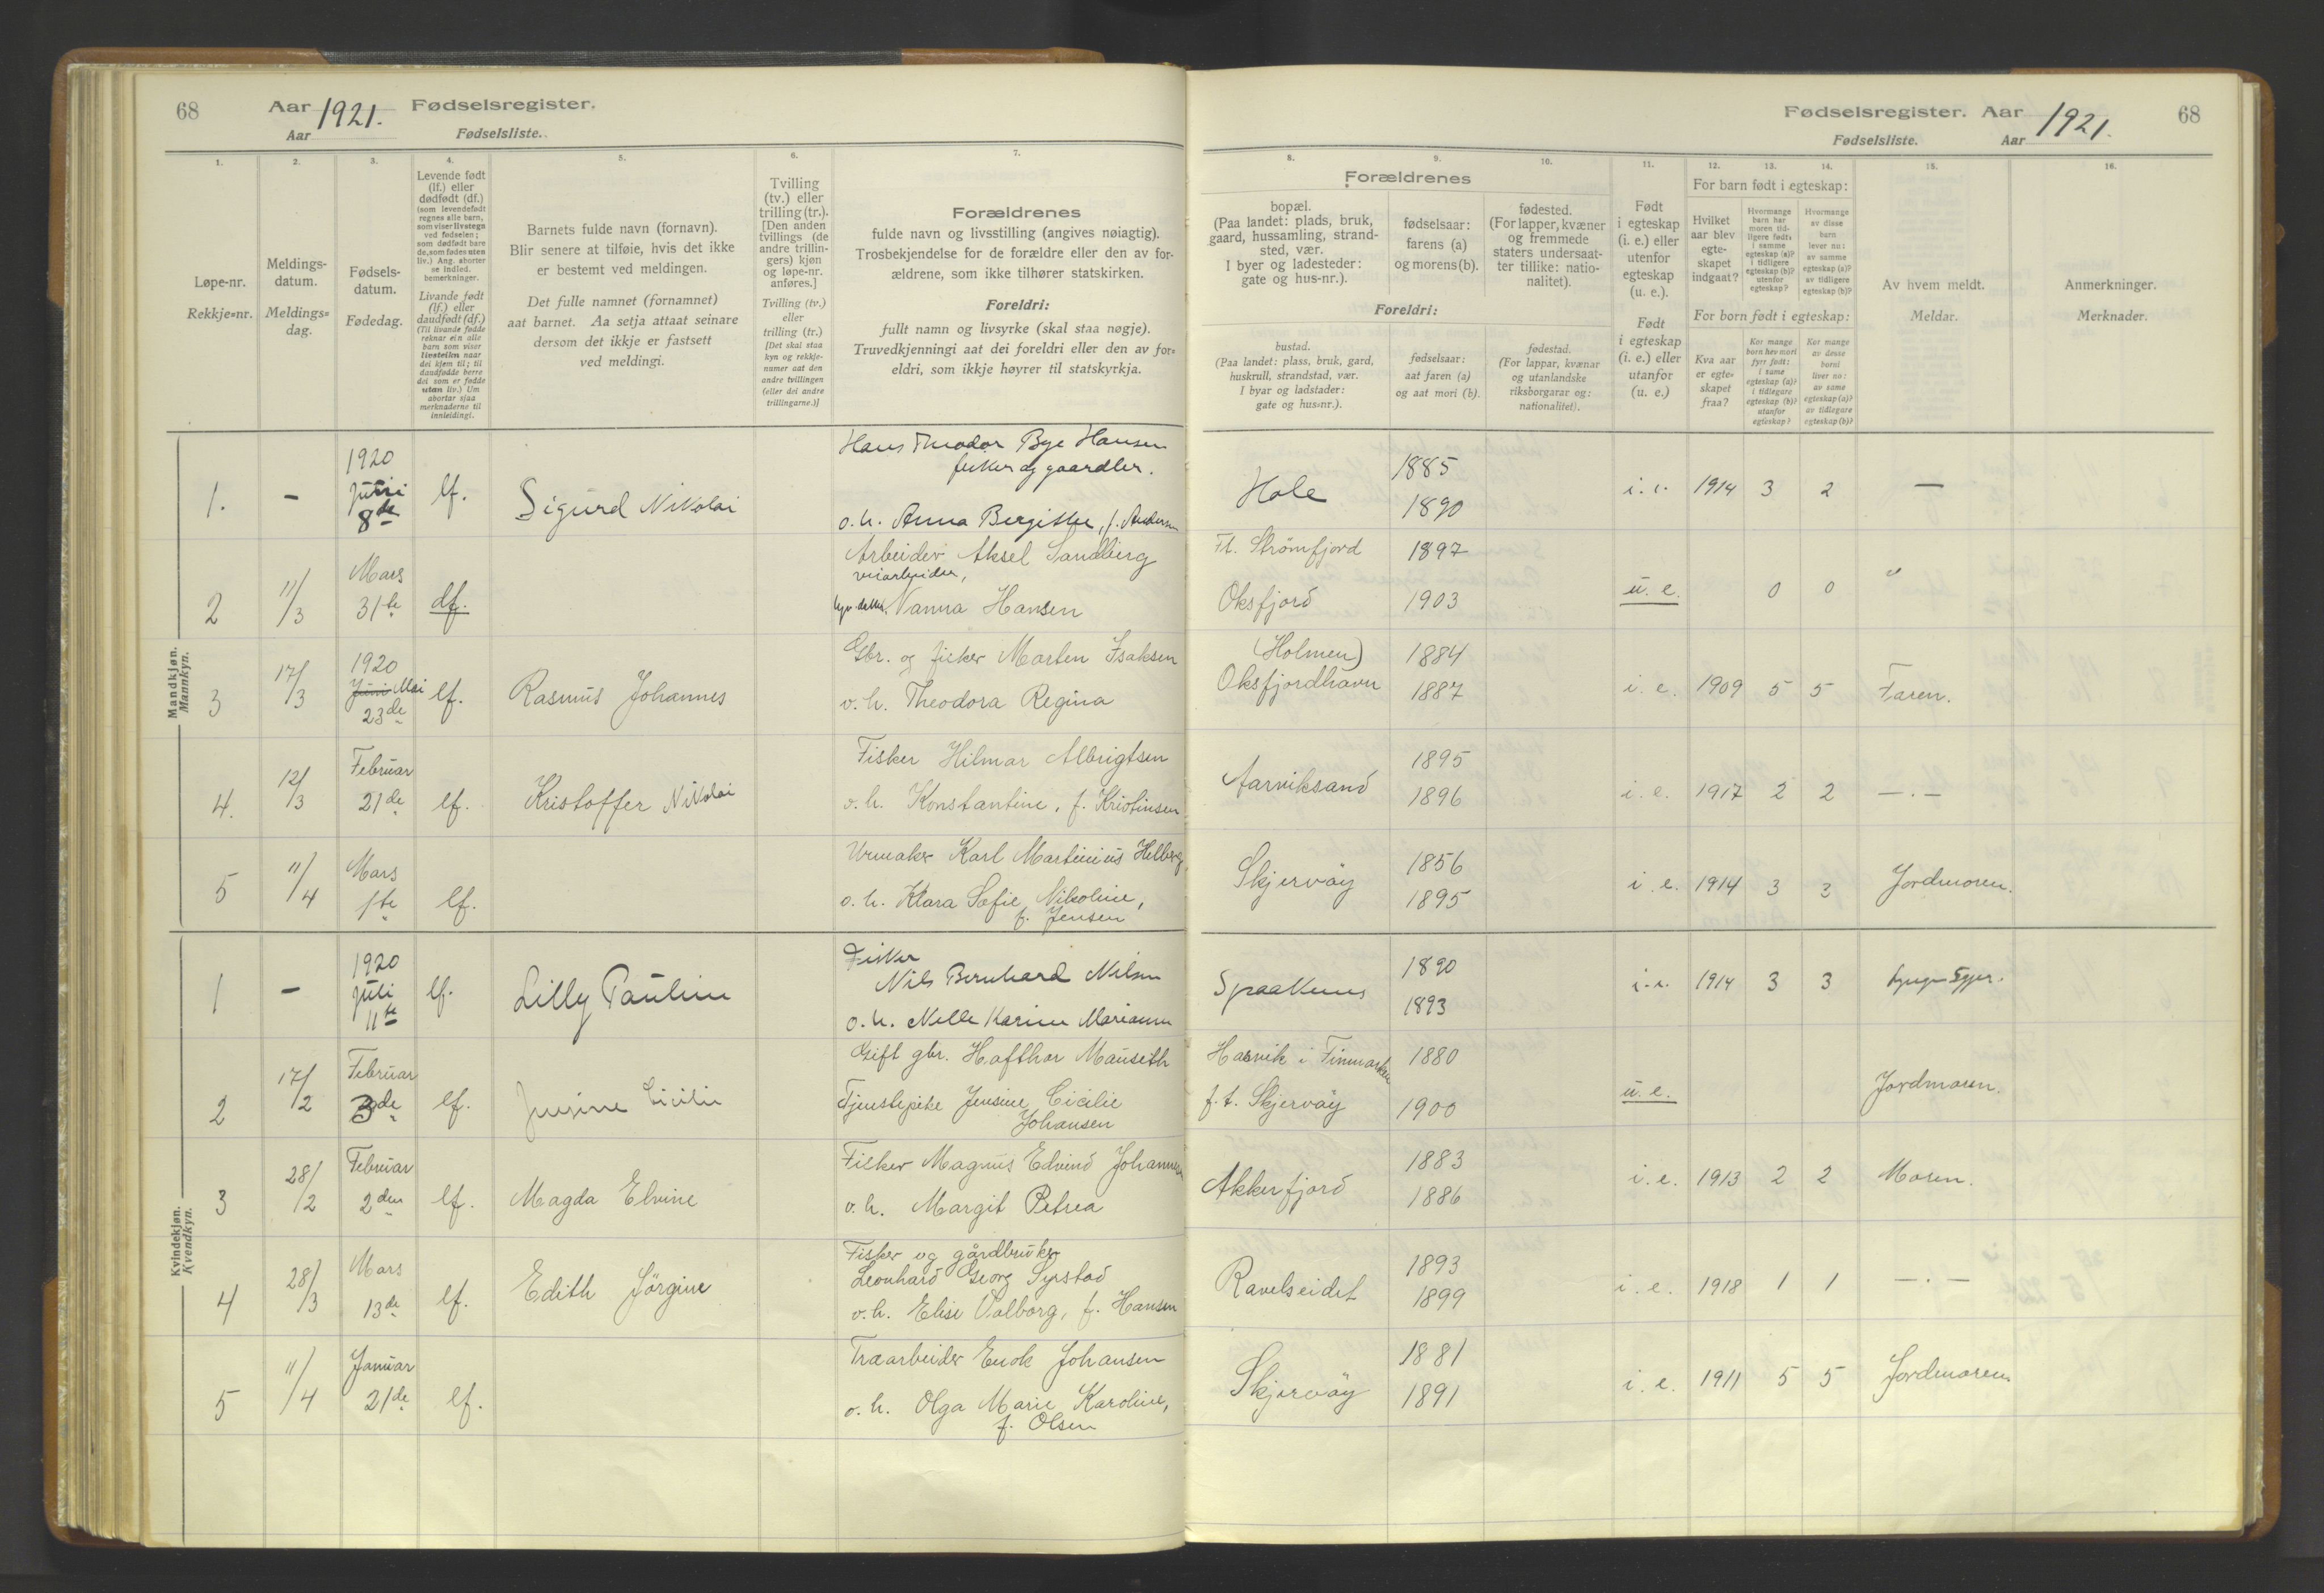 68 Aar 1921. Fødselsregister.
Aar Fødselsliste.
1.
Løpe-nr.
Rekkje=nr.
2.
Meldings-
datum.
Meldings=
dag.
3.
Fødsels-
datum.
Fødedag.
4.
Levende født
(lf.) eller
dødfødt (df.)
(som levendefødt
regnes alle barn,
som viser livstegn
ved fødselen;
som dødfødt bare
de, som fødes uten
liv.) Ang. aborter
se indled.
bemerkninger.
Livande født
(lf.) eller
daudfødt (df.)
(Til livande fødde
reknar ein alle
barn som viser
livsteikn naar
dei kjem til; til
daudfødde berre
dei som er fødde
utan liv.) Um
abortar sjaa
merknaderne til
innleidingi.
5.
Barnets fulde navn (fornavn).
Blir senere at tilføie, hvis det ikke
er bestemt ved meldingen.
Det fulle namnet (fornamnet)
aat barnet. Aa setja attaat seinare
dersom det ikkje er fastsett
ved meldingi.
6.
Tvilling
(tv.) eller
trilling (tr.).
[Den anden
tvillings (de
andre trillin-
gers) kjøn
og løpe-nr.
anføres.]
Tvilling (tv.)
eller
trilling (tr.)
[Det skal staa
kyn og rekkje-
numer aat den
andre tvillingen
(eller dei andre
trillingarne.)]
7.
Forældrenes
fulde navn og livsstilling (angives nøiagtig).
Trosbekjendelse for de forældre eller den av for-
ældrene, som ikke tilhører statskirken.
Foreldri:
fullt namn og livsyrke (skal staa nøgje).
Truvedkjenningi aat dei foreldri eller den av for=
eldri, som ikkje høyrer til statskyrkja.
Fødselsregister. Aar 1921. 68
Fødselsliste. Aar
8.
Forældrenes
bopæl.
(Paa landet: plads, bruk,
gaard, hussamling, strand-
sted, vær.
I byer og ladesteder:
gate og hus-nr.).
Foreldri:
bustad.
(Paa landet: plass, bruk, gard,
huskrull, strandstad, vær.
I byar og ladstader:
gate og hus=nr.).
9.
fødselsaar:
farens (a)
og morens (b).
fødselsaar:
aat faren (a)
og aat mori (b).
10.
fødested.
(For lapper, kvæner
og fremmede
staters undersaat-
ter tillike: natio-
nalitet).
fødestad.
(For lappar, kvænar
og utanlandske
riksborgarar og:
nationalitet).
11.
Født
i egteskap
(i. e.) eller
utenfor
egteskap
(u. e.).
Født
i egteskap
(i. e.) eller
utanfor
(u. e.)
12. 13. 14.
For barn født i egteskap:
Hvilket
aar blev
egte-
skapet
indgaat?
Hvormange
barn har
moren tid-
ligere født:
i samme
egteskap (a)?
i tidligere
egteskap (b)?
utenfor
egteskap?
Hvormange
av disse
barn
lever nu:
av samme
egteskap (a)?
av tidligere
egteskap (b)?
For born født i egteskap:
Kva aar
er egte=
skapet
fraa?
Kor mange
born hev mori
fyrr født:
i same
egteskap (a)?
i tidlegare
egteskap (b)?
utanfor
egteskap?
Kor mange
av desse
borni
liver no:
av same
egteskap (a)?
av tidlegare
egteskap (b)?
15.
Av hvem meldt.
Meldar.
16.
Anmerkninger.
Merknader.
Mandkjøn.
Mannkyn.
1. – 1920 Juni 8de lf. Sigurd Nikolai
Hans Theodor Bye Hansen
fisker og gaardbr.
o. h. Anna Bergitte, f. Andersen
Hole 1885 1890 i. e. 1914 3 2 —
2 11/3 Mars 31te df.
Arbeider Aksel Sandberg
veiarbeider,
Nanna Hansen
Fl. Strømfjord 1897
Oksfjord 1903 u. e. 0 0 "
3 17/3 1920 Juni Mai 23de lf. Rasmus Johannes
Gbr. og fisker Marten Isaksen
o. h. Theodora Regina
(Holmen) 1884
Oksfjordhavn 1887 i. e. 1909 5 5 Faren.
4. 12/3 Februar 21de lf. Kristoffer Nikolai
Fisker Hilmar Albrigtsen
o. h. Konstantine, f. Kristinsen
Aarviksand 1895 1896 i. e. 1917 2 2 — . —
5 11/4 Mars 1te lf.
Urmaker Karl Martinius Hellberg,
o. h. Klara Sofie Nikoline,
f. Jensen
Skjervøy 1856 1895 i. e. 1914 3 3 Jordmoren.
Kvindekjøn.
Kvendkyn.
1 – 1920 Juli 11te lf. Lilly Pauline
Fisker
Nils Bernhard Nilsen
o. h. Nelle Karine Marianne
Spaakenes 1890 1893 i. e. 1914 3 3
2 17/2 Februar 3de lf. Jensine Cicilie
Gift gbr. Hafthor Mauseth
Tjenstepike Jensine Cicilie
Johansen
Hasvik i Finmarken 1880
f. t. Skjervøy 1900 u. e. Jordmoren.
3 28/2 Februar 2den lf. Magda Elvine
Fisker Magnus Edvind Johannesen
o. h. Margit Petrea
Akkerfjord 1883 1886 i. e. 1913 2 2 Moren.
4 28/3 Mars 13de lf. Edith Jørgine
Fisker og gårdbruker
Leonhard Georg Syrstad
o. h. Elise Valborg, f. Hansen
Ravelseidet 1893 1899 i. e. 1918 1 1 — . —
5 11/4 Januar 21de lf.
Træarbeider Enok Johansen
o. h. Olga Marie Karoline,
f. Olsen
Skjervøy 1881 1891 i. e. 1911 5 5 Jordmoren